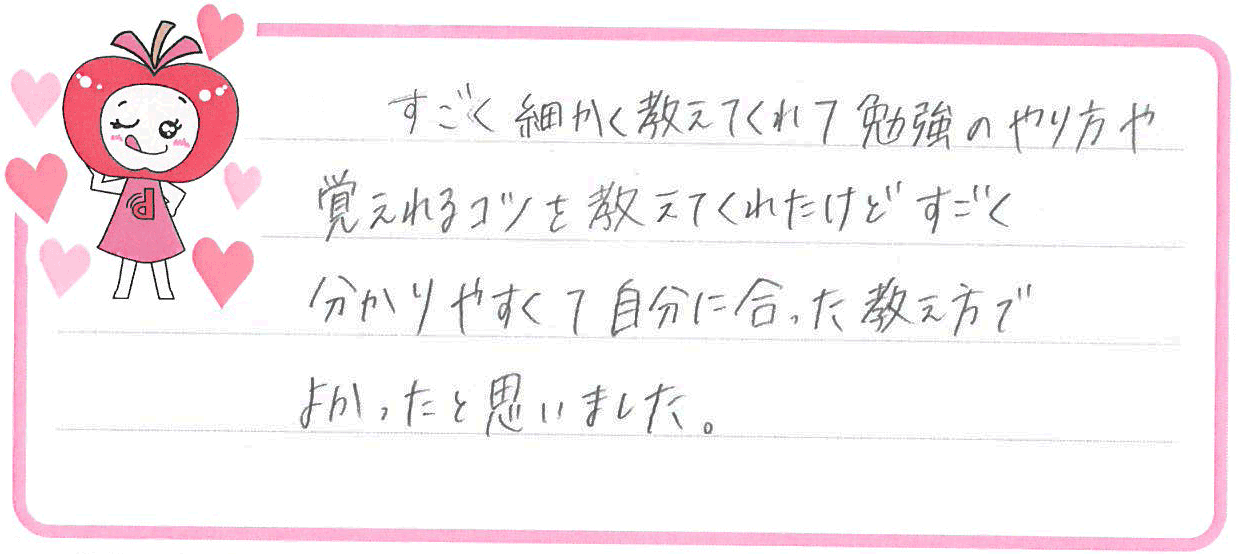 すごく細かく教えてくれて勉強のやり方や
覚えれるコツを教えてくれたけどすごく
分かりやすくて自分に合った教え方で
よかったと思いました。